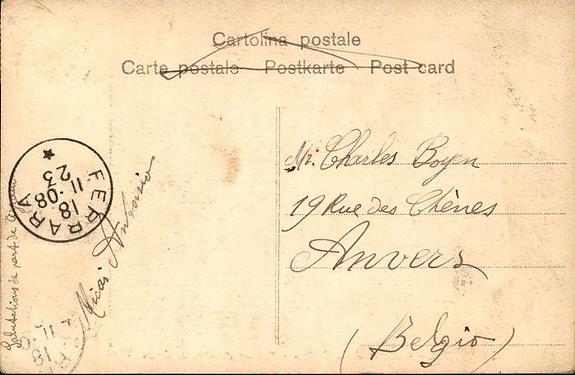 Cartolina postale
Carte postale Postkarte Post card
Mr. Charles Boyen
19 Rue des Chênes
Anvers
(Belgio)
FERRARA
18
11.08
23
Salutations de part de